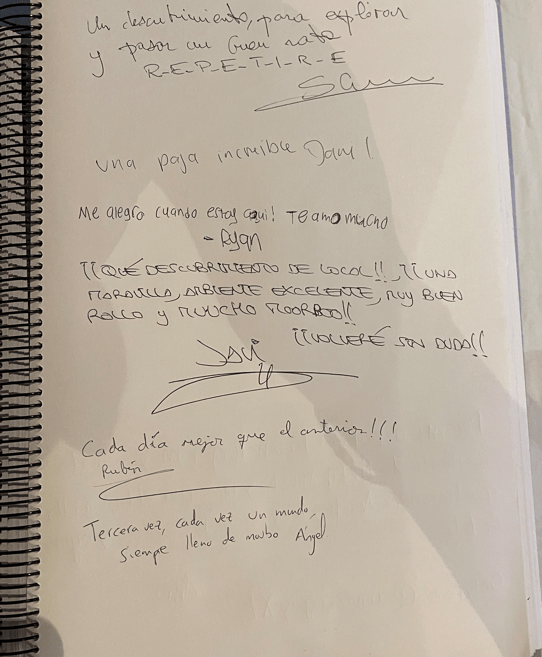 Un descubrimiento, para explorar
y pasar un buen rato
R-E-P-E-T-I-R-E
Sam
Una paja increible Dani!
Me alegro cuando estas aqui! Te amo mucho
- Ryan
¡¡QUÉ DESCUBRIMIENTO DE LOCAL!!, ¡¡UNA
MARAVILLA, AMBIENTE EXCELENTE, MUY BUEN
ROLLO y MUUCHO MOORBOO!!
¡¡VOLVERÉ SIN DUDA!!
Javi
Cada día mejor que el anterior!!!
Rubén
Tercera vez, cada vez un mundo,
Siempe lleno de morbo Ángel